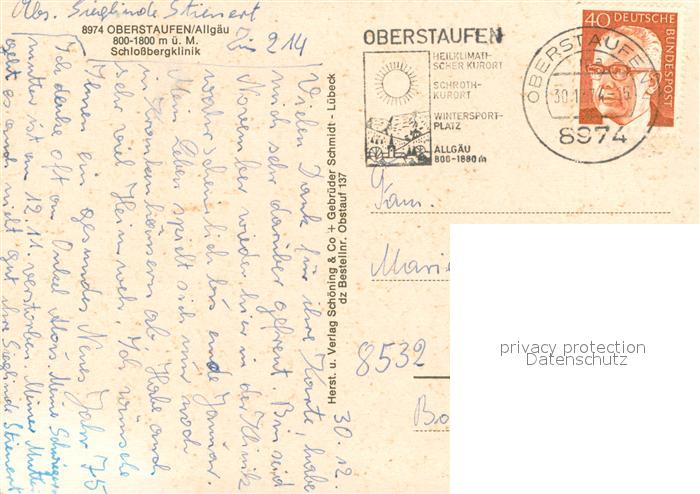 Abs. Sieglinde Stienert
8974 OBERSTAUFEN/Allgäu
800-1800 m ü. M.
Schloßbergklinik
Zi 214
30.12.
Vielen Dank für ihre Karte, habe
mich sehr darüber gefreut. Bin seid
November wieder hier in der Klinik
warscheinlich bis ende Januar.
Mein Leben spielt sich nur noch
in Kranenhäusern ab. Habe auch
sehr viel Heimweh. Ich wünsche
Ihnen ein gesundes Neues Jahr 75
Ich denke oft an Onkel Alois. Meine Schwieger-
mutter ist am 12.11. verstorben. Meiner Mutter
geht es auch nicht gut ihre Sieglinde Stienert
Herst. u. Verlag Schöning & Co + Gebrüder Schmidt - Lübeck
dz Bestellnr. Obstauf 137
OBERSTAUFEN
HEILKLIMATI-
SCHER KURORT
SCHROTH-
KURORT
WINTERSPORT-
PLATZ
ALLGÄU
800-1880 m
OBERSTAUFEN
30.12.74-15
8974
40 DEUTSCHE
BUNDESPOST
Fam.
Marie
8532
Ba
privacy protection
Datenschutz